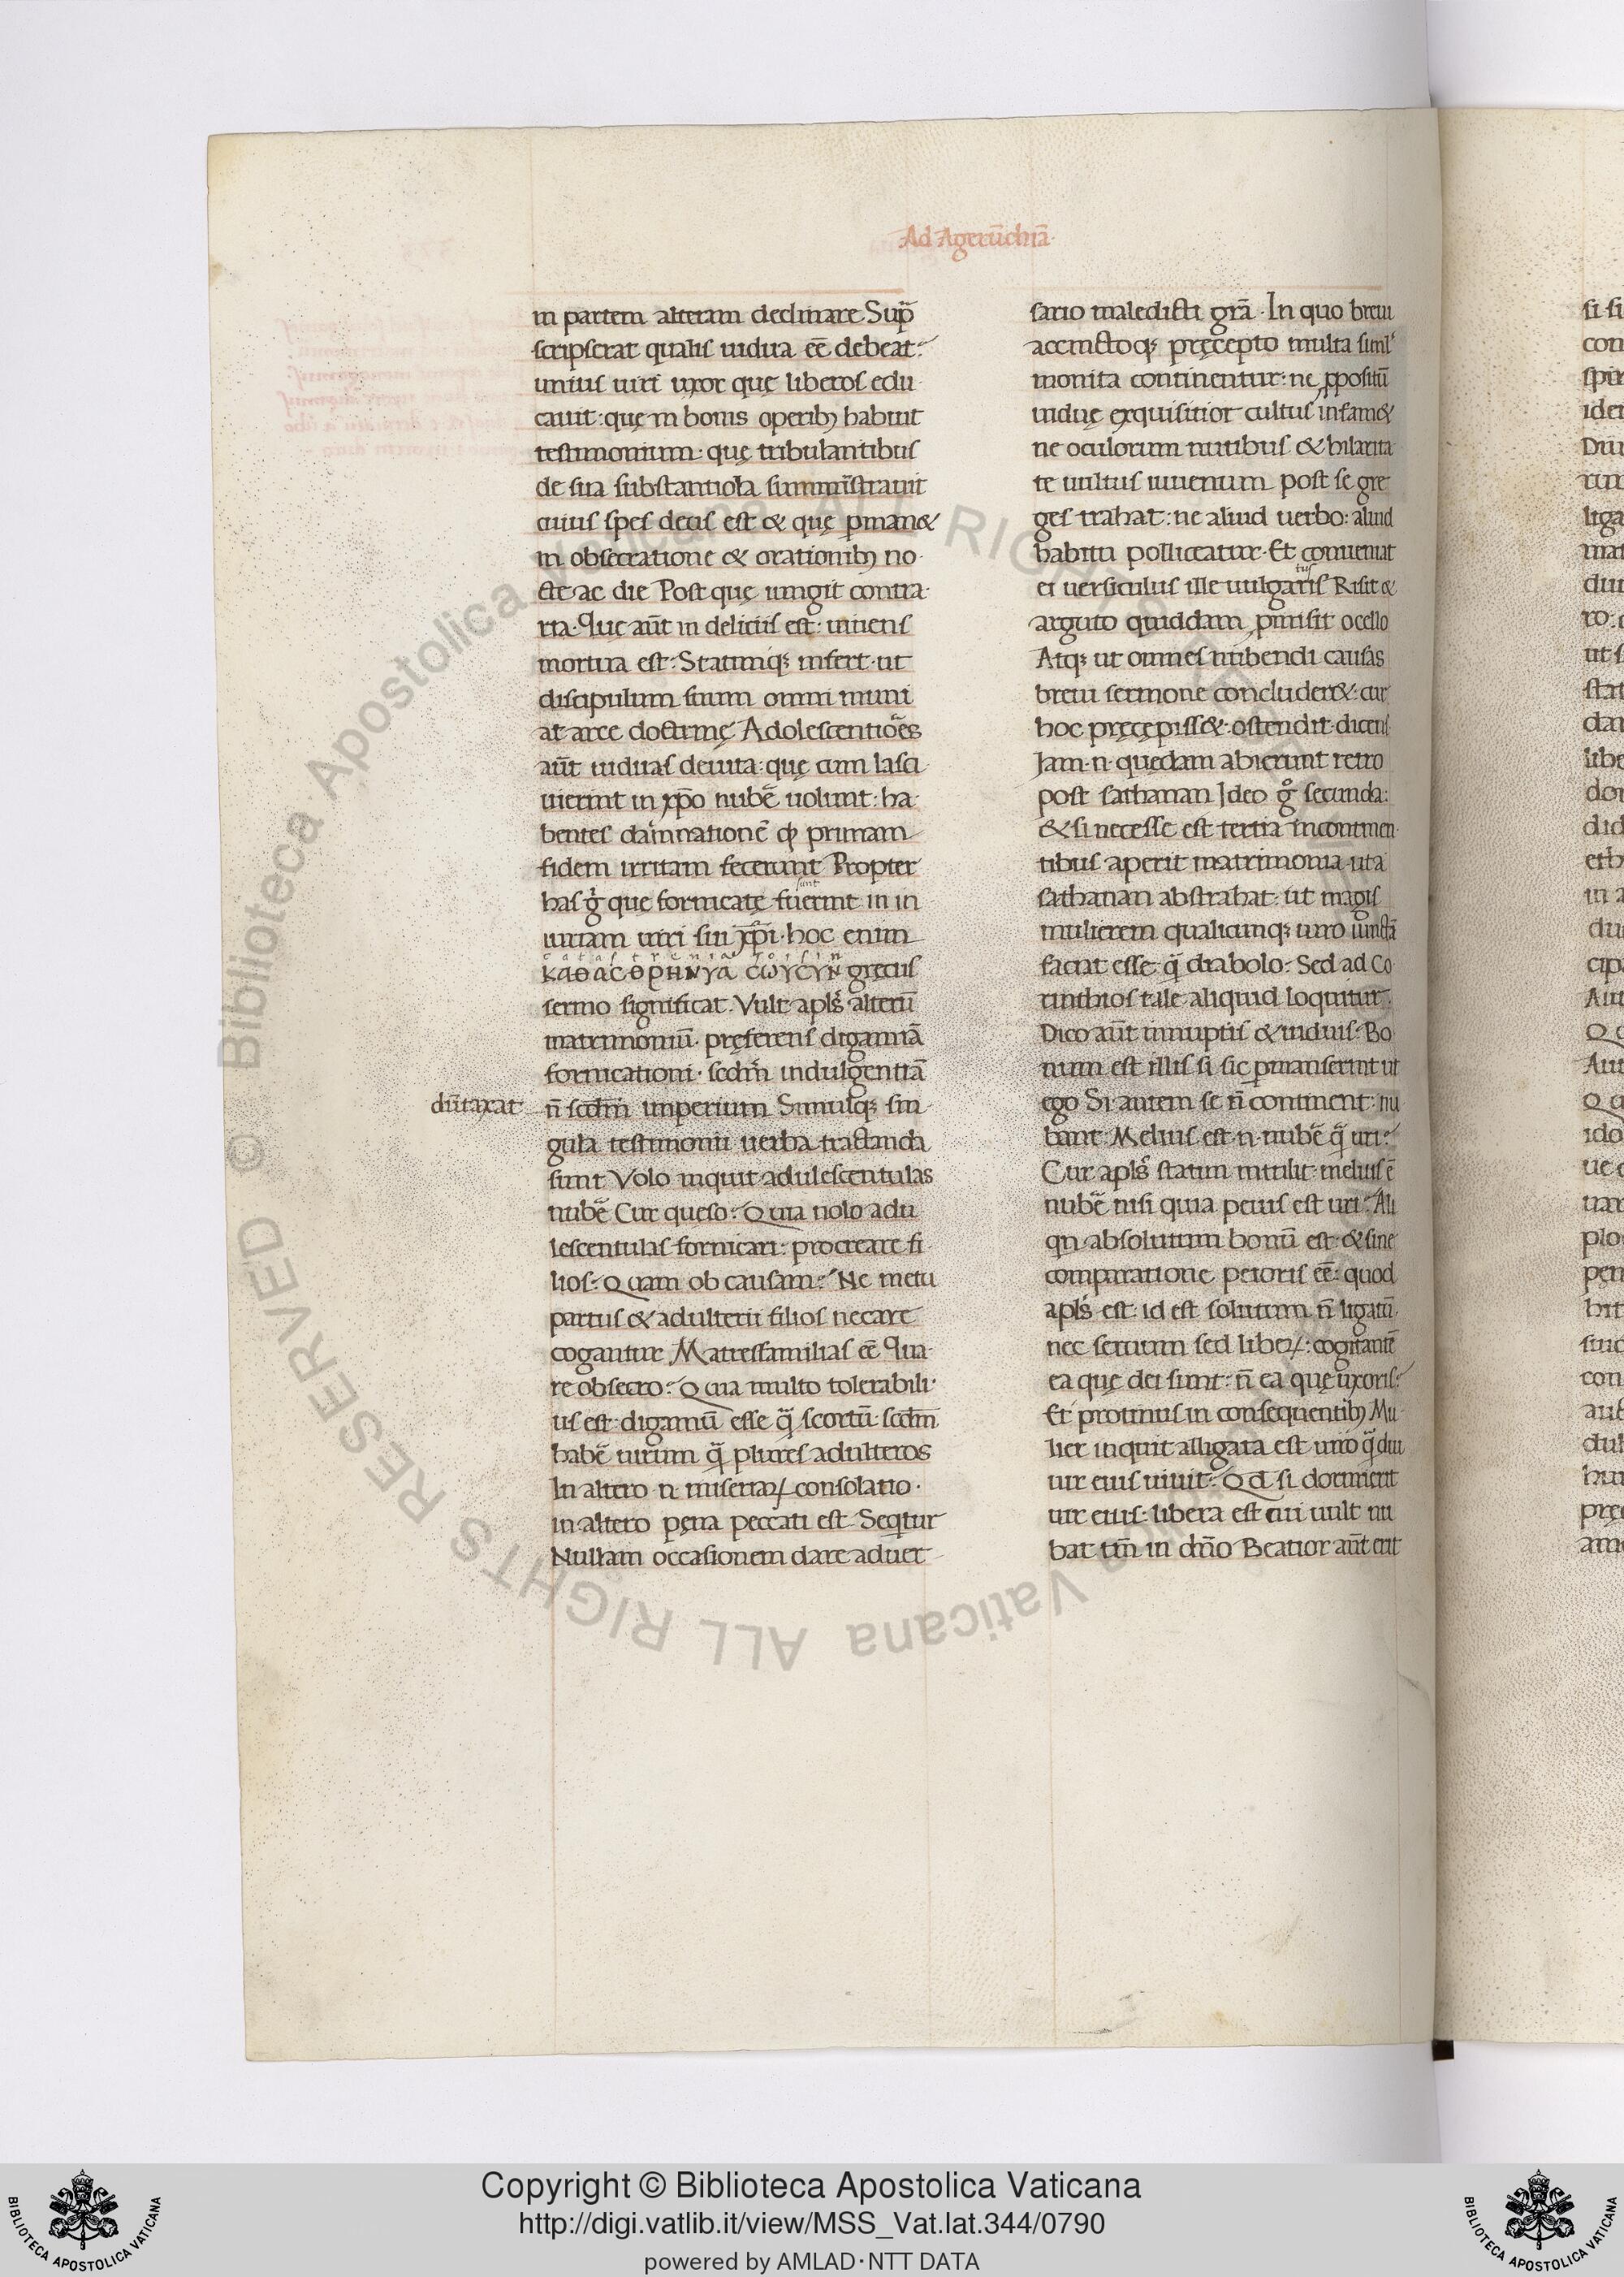 Ad Agerūchiā
in partem alteram declinare Sup̄
scripserat qualis uidua eē debeat:
unius uiri uxor quę liberos edu
cauit: quę in bonis operib; habuit
testimonium: quę tribulantibus
de sua substantiola summīstrauit
cuius spes deus est & quę ꝑman&
in obsecratione & orationib; no
cte ac die Post quę iungit contra
ria. Que aūt in deliciis est: uiuens
mortua est: Statimq; infert ut
discipulum suum omni muni
at arce doctrinę Adolescentiōes
aūt uiduas deuita: quę cum lasci
uierint in xp̄o nubē uolunt: ha
bentes damnationē qđ primam
fidem irritam fecerunt Propter
has g̊ que fornicatę sunt fuerint in in
iuriam uiri sui xp̄i. hoc enim
catastrenia soisin
ΚΑΘΑϹΘΡΗΝΥΑ ϹΩΥϹΥΝ grecus
sermo significat. Vult apl̄s alterū
matrimoniū. pręferens digamiā
fornicationi. scdm̄ indulgentiā
dūtaxat
n̄ scdm̄ imperium Simulq; sin
gula testimonii uerba tractanda
sunt Volo inquit adulescentulas
nubē Cur queso: Quia nolo adu
lescentulas fornicari: procreare fi
lios: Quam ob causam: Ne metu
partus & adulterii filios necare
cogantur Matresfamilias eē Qua
re obsecro: Quia multo tolerabili
us est digamū esse q̄ scortū: scdm̄
habē uirum q̄ plures adulteros
In altero n miseriaꝝ consolatio.
in altero pęna peccati est Seqtur
Nullam occasionem dare aduer
sario maledicti grā. In quo breui
accinctoq; pręcepto multa siml'
monita continentur: ne ꝓpositū
uiduę exquisitior cultus infam&
ne oculorum nutibus & hilarita
te uultus iuuenum post se gre
ges trahat: ne aliud uerbo: aliud
habitu polliceatur. Et conueniat
tus
ei uersiculus ille uulgaris Risit &
arguto quiddam ꝓmisit ocello
Atq; ut omnes nubendi causas
breui sermone concluder&: cur
hoc pręcepiss& ostendit dicens
Iam .n. quędam abierunt retro
post sathanan Ideo g̊ secunda:
& si necesse est tertia incontinen
tibus aperit matrimonia ut a
sathanan abstrahat: ut magis
mulierem qualicunq; uiro iunctā
faciat esse q̄ diabolo: Sed ad Co
rinthios tale aliquid loquitur.
Dico aūt innuptis & uiduis: Bo
num est illis si sic ꝑmanserint ut
ego Si autem se n̄ continent: nu
bant: Melius est .n. nubē q̄ uri:
Cur apl̄s statim intulit: melius ē
nubē nisi quia peius est uri: Ali
qn absolutum bonū est: & sine
comparatione peioris eē: quod
apl̄s est: id est solutum n̄ ligatū
nec seruum sed liberꝝ: cogitantē
ea quę dei sunt: n̄ ea quę uxoris:
Et protinus in consequentib; Mu
lier inquit alligata est uiro q̄diu
uir eius uiuit: Qd si dormierit
uir eius: libera est cui uult nu
bat tm̄ in dn̄o Beatior aūt erit
Copyright © Biblioteca Apostolica Vaticana
http://digi.vatlib.it/view/MSS_Vat.lat.344/0790
powered by AMLAD·NTT DATA
BIBLIOTECA APOSTOLICA VATICANA
BIBLIOTECA APOSTOLICA VATICANA